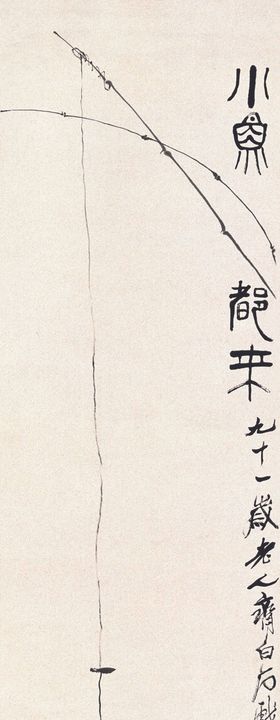 小魚都來九十一歲老人齊白石